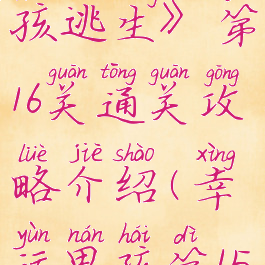 孩逃生》第
guān tōng guān gōng
16关通关攻
lüè jiè shào xìng
略介绍(幸
yùn nán hái dì
运男孩第15